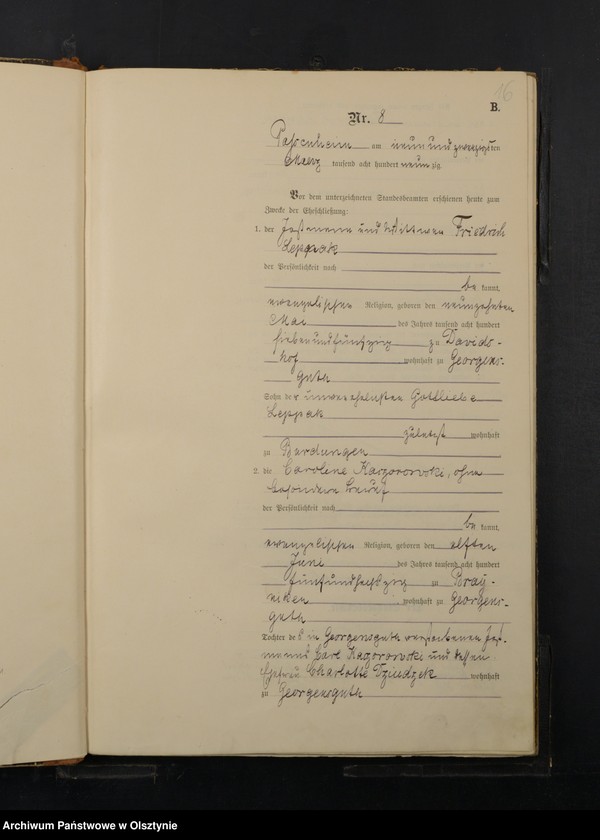 16
B.
Nr. 8
Passenheim am neun und zwanzigsten
Maerz tausend acht hundert neunzig.
Vor dem unterzeichneten Standesbeamten erschienen heute zum
Zwecke der Eheschließung:
1. der Instmann und Wittwer Friedrich
Leppak
der Persönlichkeit nach
be kannt,
evangelischer Religion, geboren den neunzehnten
Mai des Jahres tausend acht hundert
siebenundfunfzig zu Davids-
hof, wohnhaft zu Georgens-
guth
Sohn der unverehelichten Gottliebe
Leppak
zuletzt wohnhaft
zu
2. die Caroline Kaczorowski, ohne
besonderen Beruf
der Persönlichkeit nach
be kannt,
evangelischer Religion, geboren den elften
Juni des Jahres tausend acht hundert
fünfundsechszig zu
wohnhaft zu Georgens-
guth
Tochter des in Georgensguth verstorbenen Inst-
manns Carl Kaczorowski und dessen
Ehefrau Charlotte wohnhaft
zu Georgensguth
Archiwum Państwowe w Olsztynie